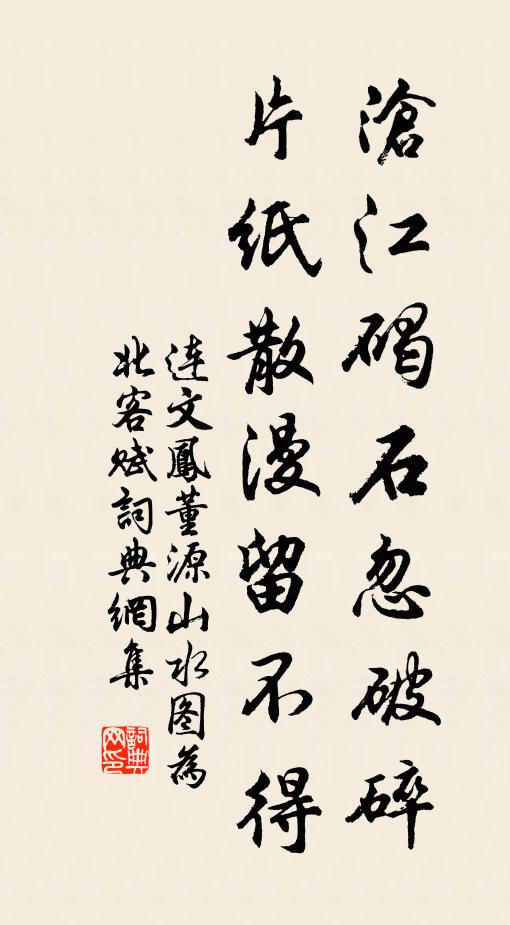 滄江碣石忽破碎
片紙散漫留不得
連文鳳董源山水图為
北客賦詞典網集
詞典
网印